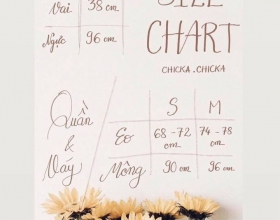 SIZE
Vai 38 cm
CHART
Ngực 96 cm
CHICKA.CHICKA
Quần & Váy
S M
Eo 68-72 cm 74-78 cm
Mông 90 cm 96 cm